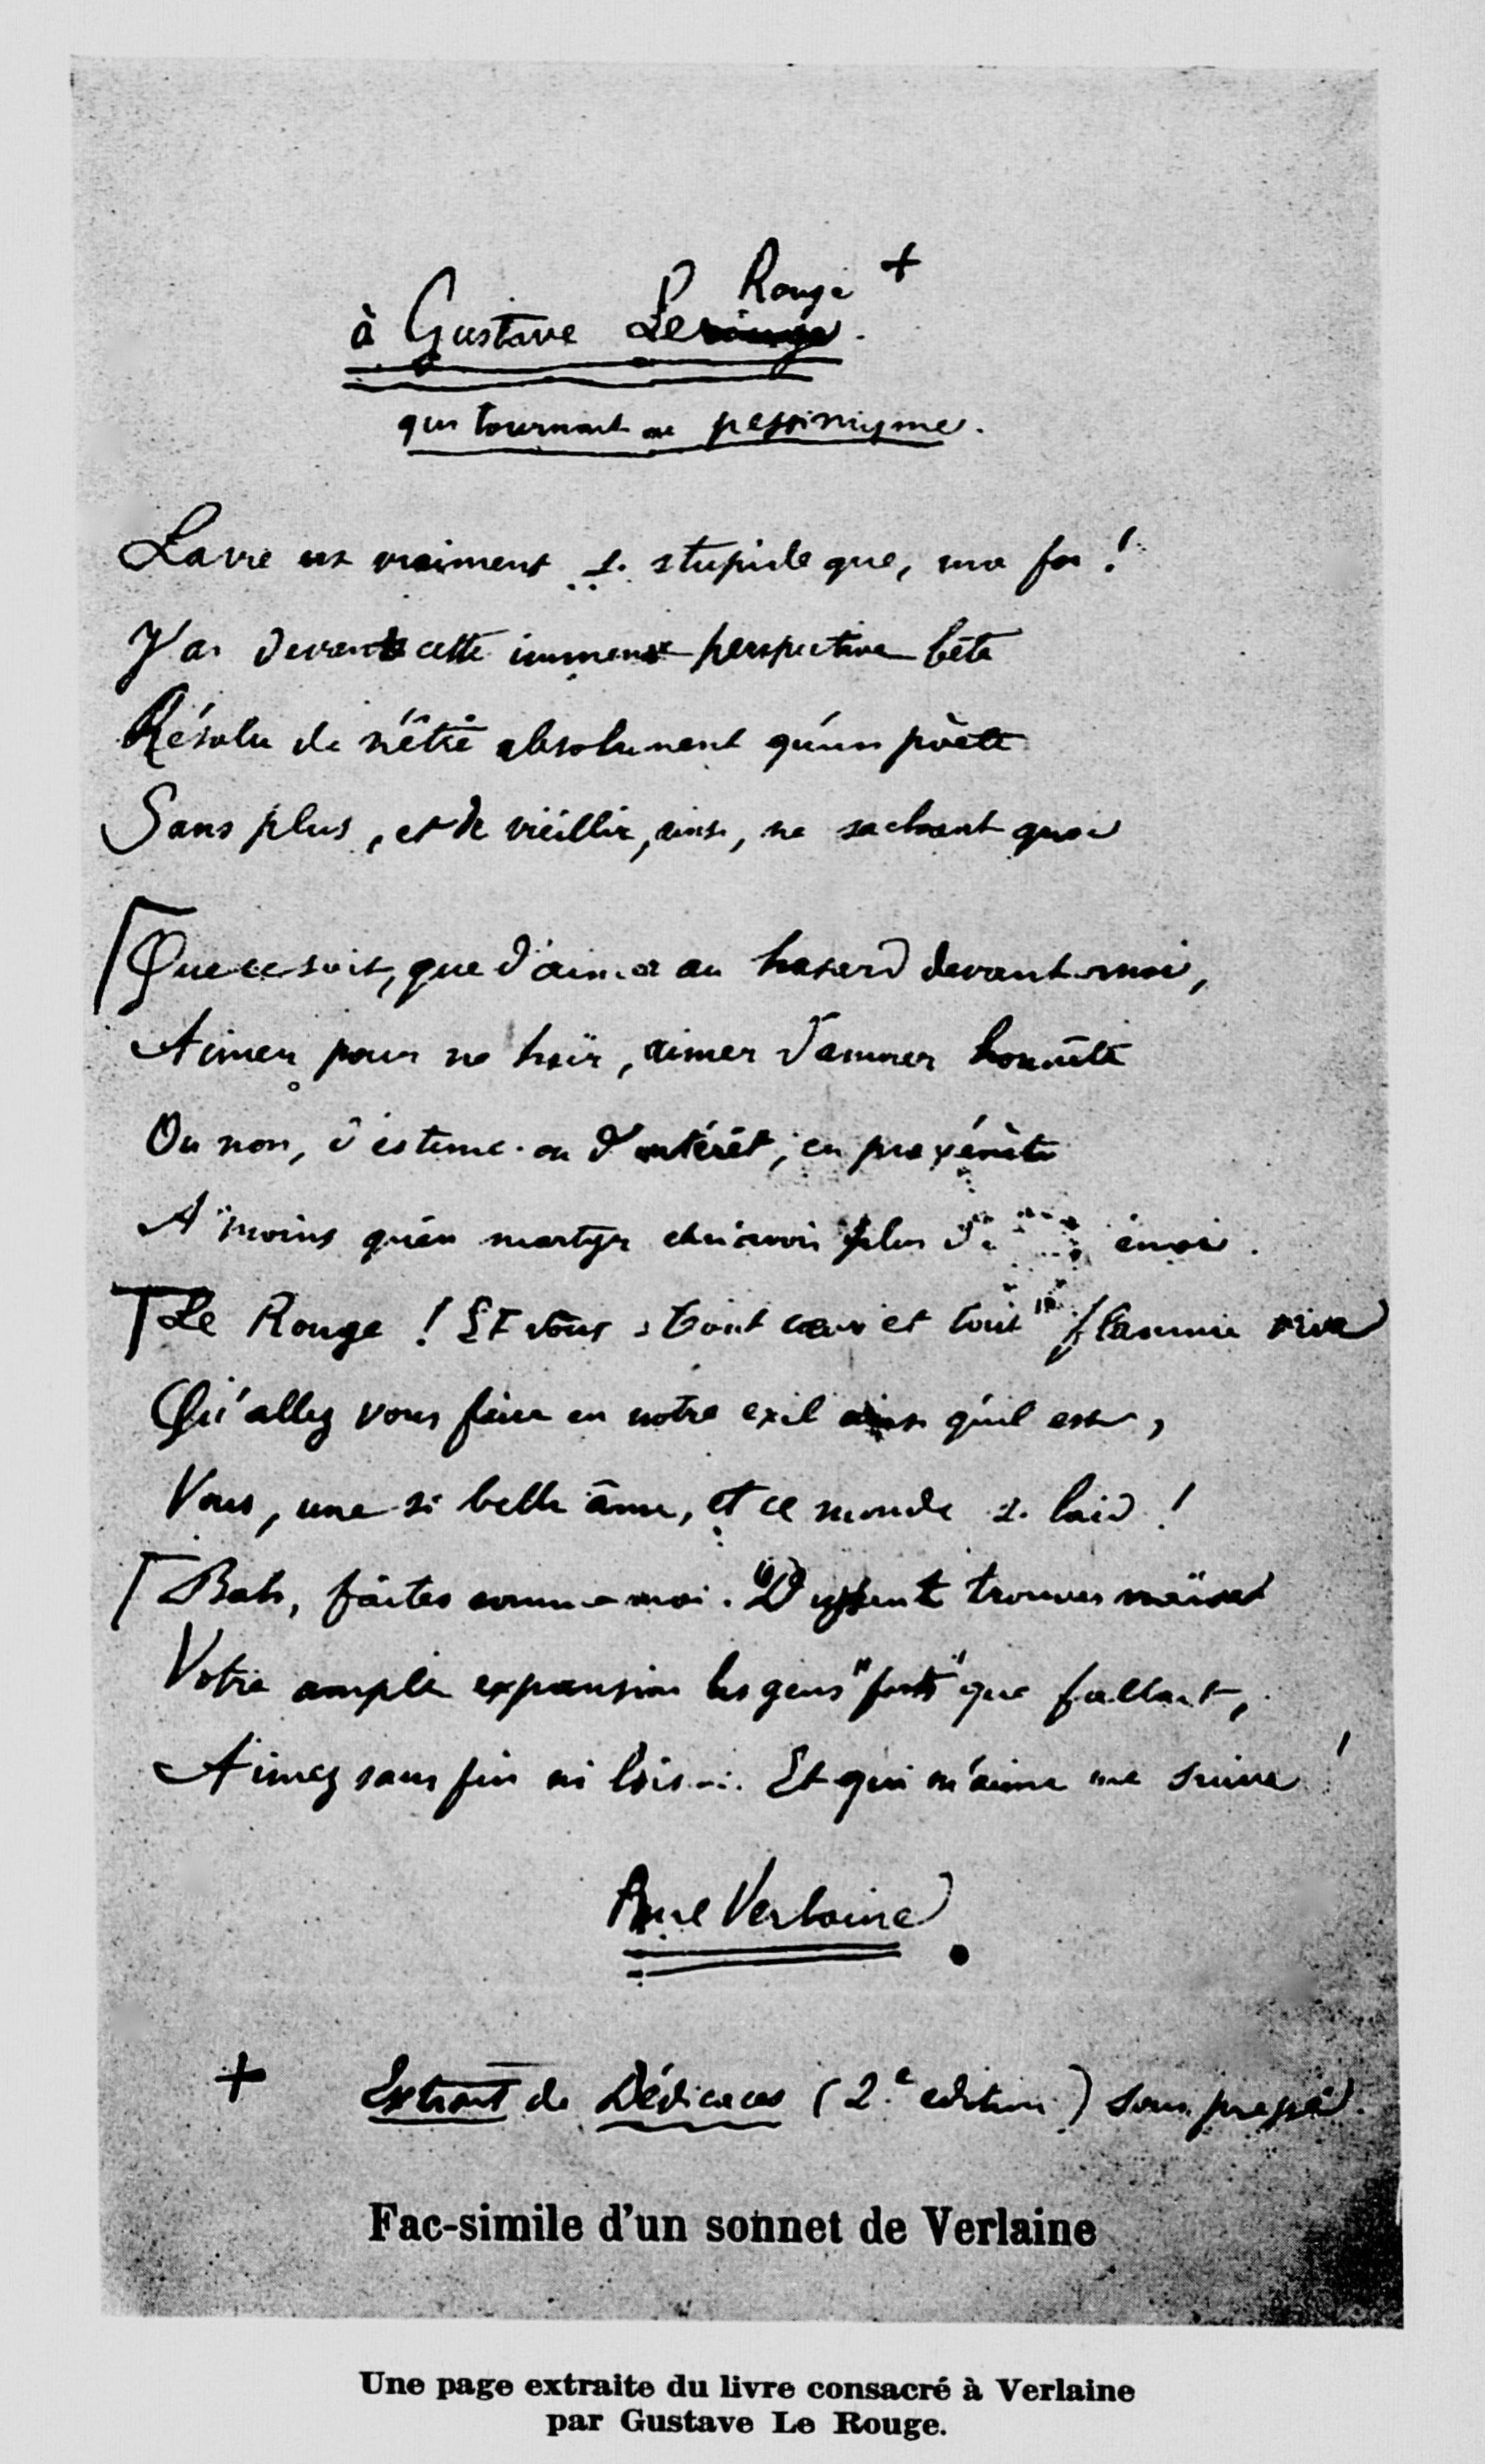 à Gustave Le Rouge +
qui tournait au pessimisme.
La vie est vraiment si stupide que, ma foi !
J'ai devant cette immense perspective bête
Résolu de n'être absolument qu'un poète
Sans plus, et de vieillir, ainsi, ne sachant quoi
Que ce soit, que d'aimer au hasard devant moi,
Aimer pour ne haïr, aimer d'amour honnête
Ou non, d'estime ou d'intérêt, en proxénète
A moins qu'en martyr plus émoi.
Le Rouge ! Et vous, tout cœur et tout flamme vive
Qu'allez vous faire en notre exil ainsi qu'il est,
Vous, une si belle âme, et ce monde si laid !
Bah, faites comme moi. Dussent trouver naïve
Votre ample expansion les gens "forts" que fallait,
Aimez sans fin ni lois... Et qui m'aime me suive !
Paul Verlaine.
+ Extrait de Dédicaces (2e edition) sous presse.
Fac-simile d'un sonnet de Verlaine
Une page extraite du livre consacré à Verlaine
par Gustave Le Rouge.